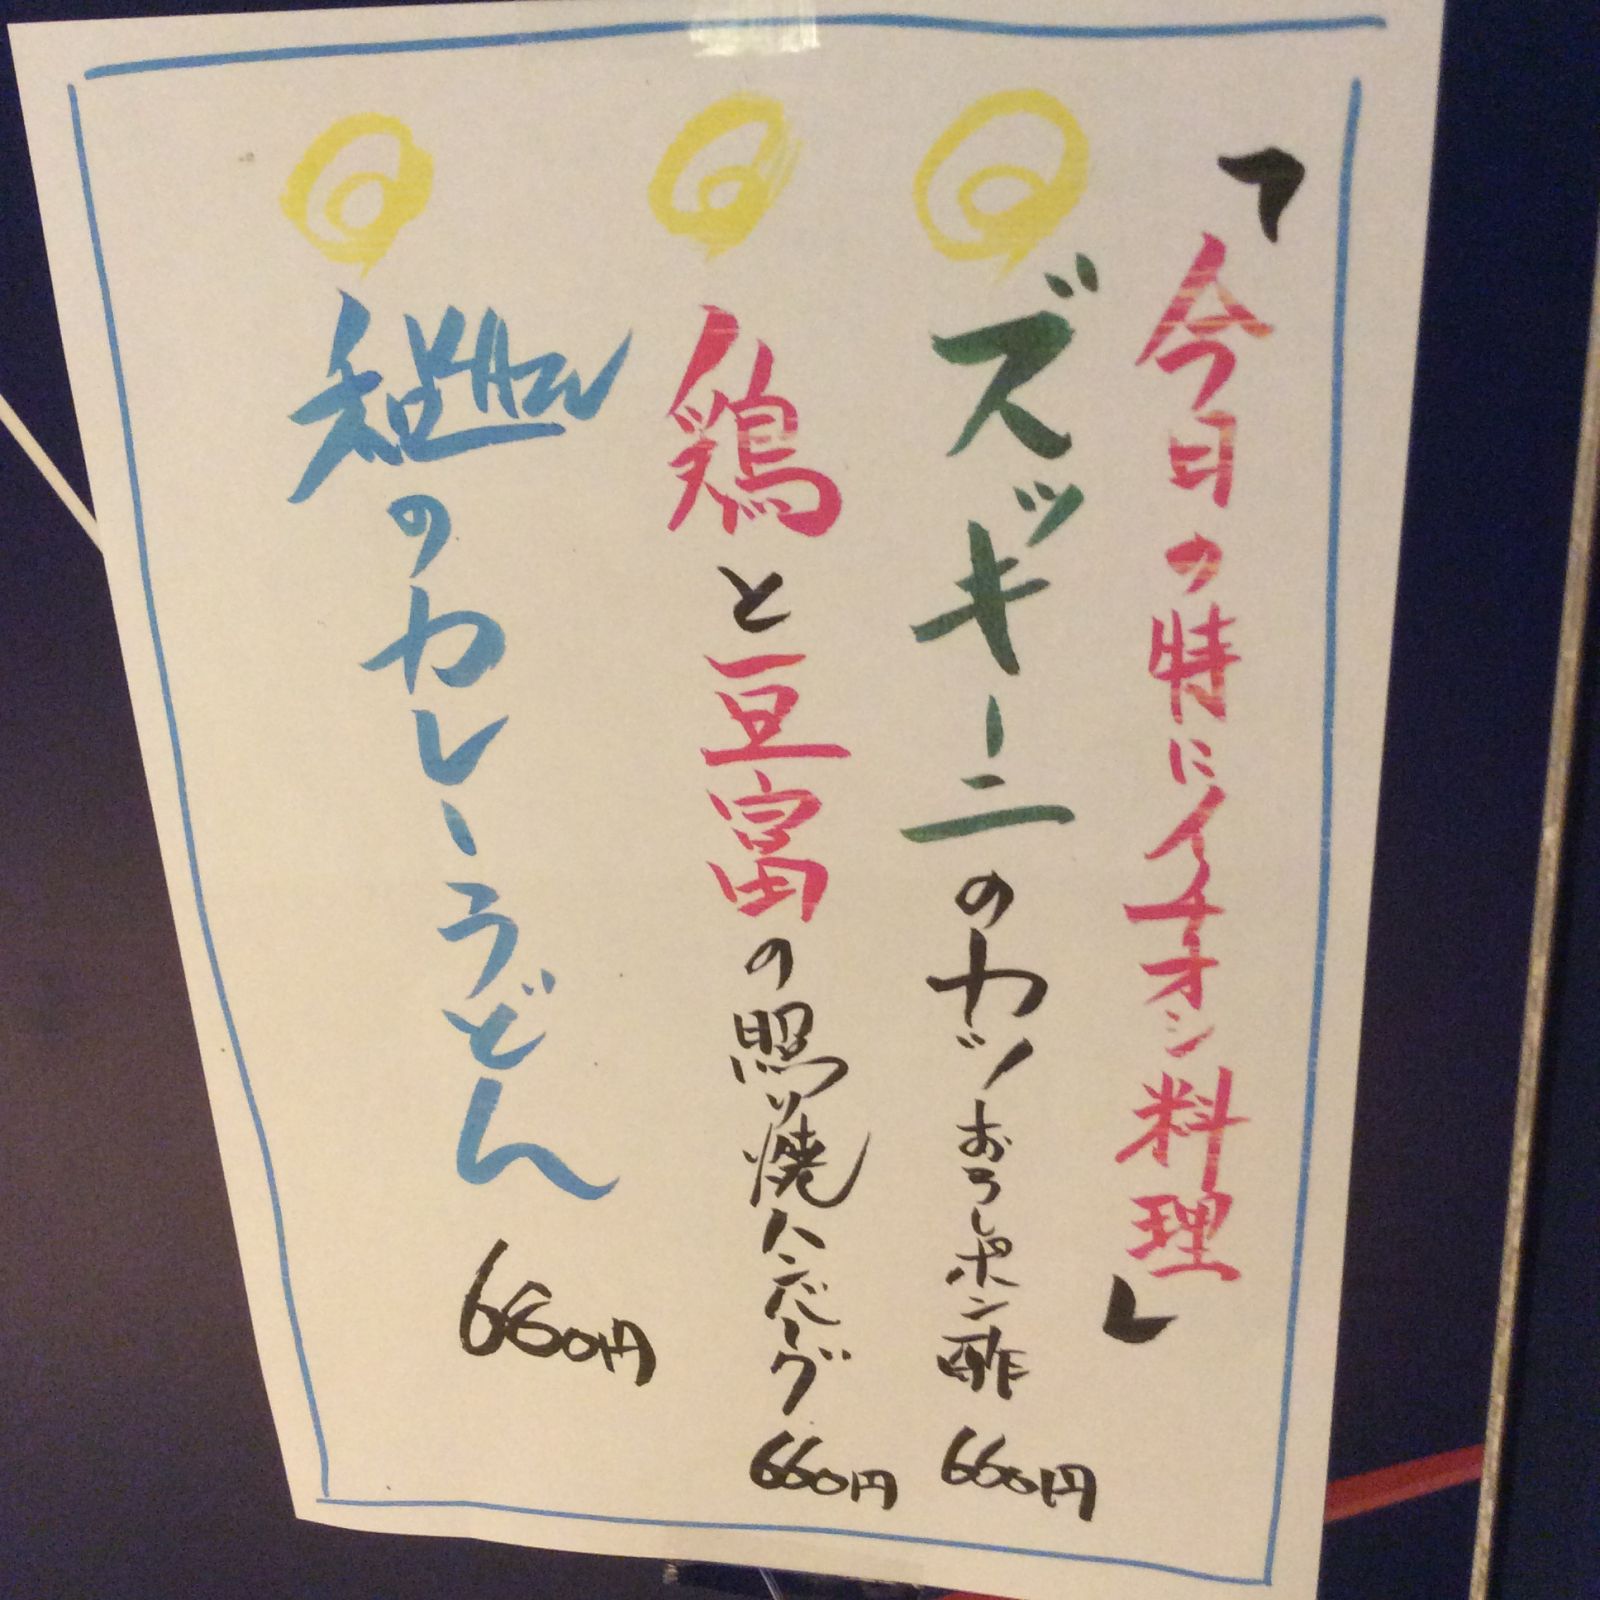 「今日の特にイチオシ料理」
ズッキーニのカツおろしポン酢 660円
鶏と豆富の照り焼ハンバーグ 660円
のカレーうどん 680円